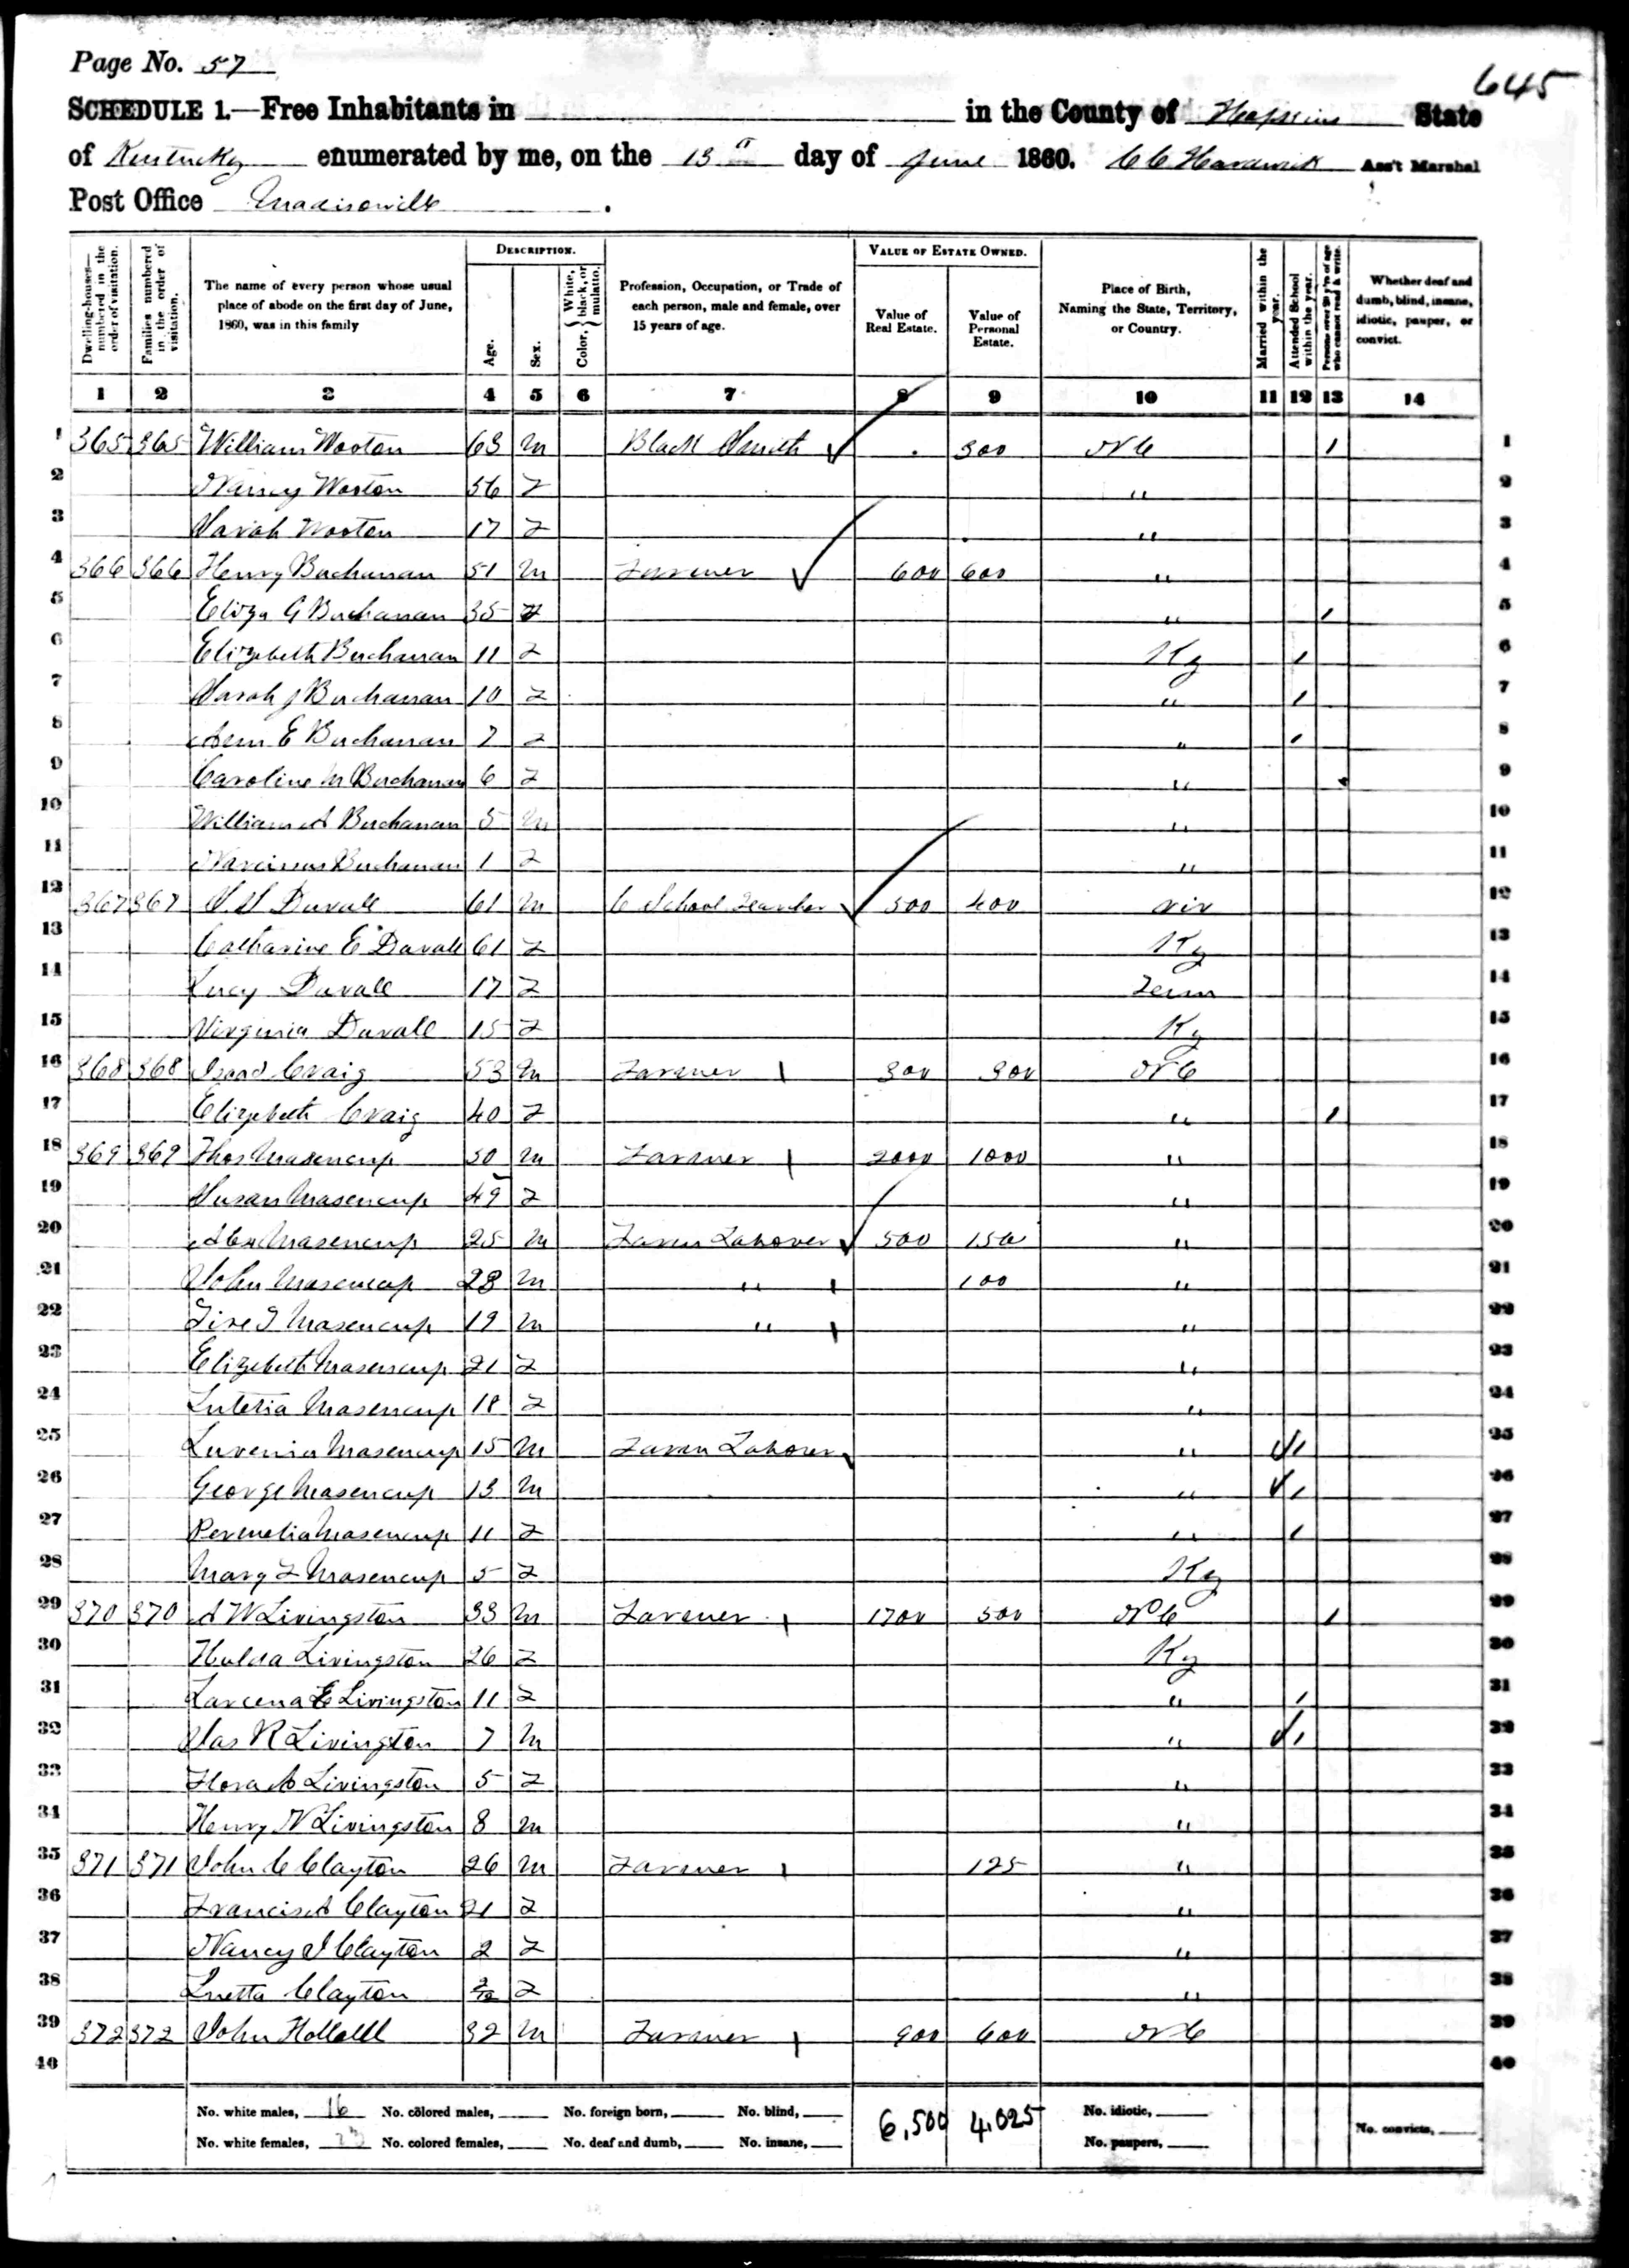 Page No. 57
645
SCHEDULE 1.—Free Inhabitants in in the County of Hopkins State
of Kentucky enumerated by me, on the 13th day of June 1860. C C Hardwick Ass't Marshal
Post Office Madisonville.
Dwelling-houses—numbered in the order of visitation.
Families numbered in the order of visitation.
The name of every person whose usual place of abode on the first day of June, 1860, was in this family
DESCRIPTION.
Age.
Sex.
Color, White, black, or mulatto.
Profession, Occupation, or Trade of each person, male and female, over 15 years of age.
VALUE OF ESTATE OWNED.
Value of Real Estate.
Value of Personal Estate.
Place of Birth, Naming the State, Territory, or Country.
Married within the year.
Attended School within the year.
Persons over 20 y'rs of age who cannot read & write.
Whether deaf and dumb, blind, insane, idiotic, pauper, or convict.
1 2 3 4 5 6 7 8 9 10 11 12 13 14
1 365 365 William Wooton 63 M Black Smith 300 N C / 1
2 Nancy Wooton 56 F " 2
3 Sarah Wooton 17 F " 3
4 366 366 Henry Buchanan 51 M Farmer 600 600 " 4
5 Eliza G Buchanan 35 F " / 5
6 Elizabeth Buchanan 11 F Ky / 6
7 Sarah J Buchanan 10 F " / 7
8 Ann E Buchanan 7 F " / 8
9 Caroline M Buchanan 6 F " 9
10 William A Buchanan 5 M " 10
11 Narcissus Buchanan 1 F " 11
12 367 367 Duvall 61 M C School Teacher 500 400 Vir 12
13 Catharine E Duvall 61 F Ky 13
14 Lucy Duvall 17 F Tenn 14
15 Virginia Duvall 15 F Ky 15
16 368 368 Isaac Craig 53 M Farmer 300 300 N C 16
17 Elizabeth Craig 40 F " / 17
18 369 369 Thos Masencup 50 M Farmer 2000 1000 " 18
19 Susan Masencup 49 F " 19
20 Alex Masencup 25 M Farm Laborer 500 150 " 20
21 John Masencup 23 M " 100 " 21
22 Masencup 19 M " " 22
23 Elizabeth Masencup 21 F " 23
24 Lutetia Masencup 18 F " 24
25 Luvenia Masencup 15 M Farm Laborer " / 25
26 George Masencup 13 M " / 26
27 Permelia Masencup 11 F " / 27
28 Mary F Masencup 5 F Ky 28
29 370 370 A W Livingston 33 M Farmer 1700 500 N C / 29
30 Hulda Livingston 26 F Ky 30
31 Larcena E Livingston 11 F " / 31
32 Jas R Livington 7 M " / 32
33 Flora A Livingston 5 F " 33
34 Henry N Livingston 3 M " 34
35 371 371 John C Clayton 26 M Farmer 125 " 35
36 Francis A Clayton 21 F " 36
37 Nancy J Clayton 2 F " 37
38 Luetta Clayton 2/12 F " 38
39 372 372 John Hollall 32 M Farmer 900 600 N C 39
40 40
No. white males, 16 No. colored males, No. foreign born, No. blind, 6,500 4,025 No. idiotic,
No. white females, 23 No. colored females, No. deaf and dumb, No. insane, No. paupers, No. convicts,